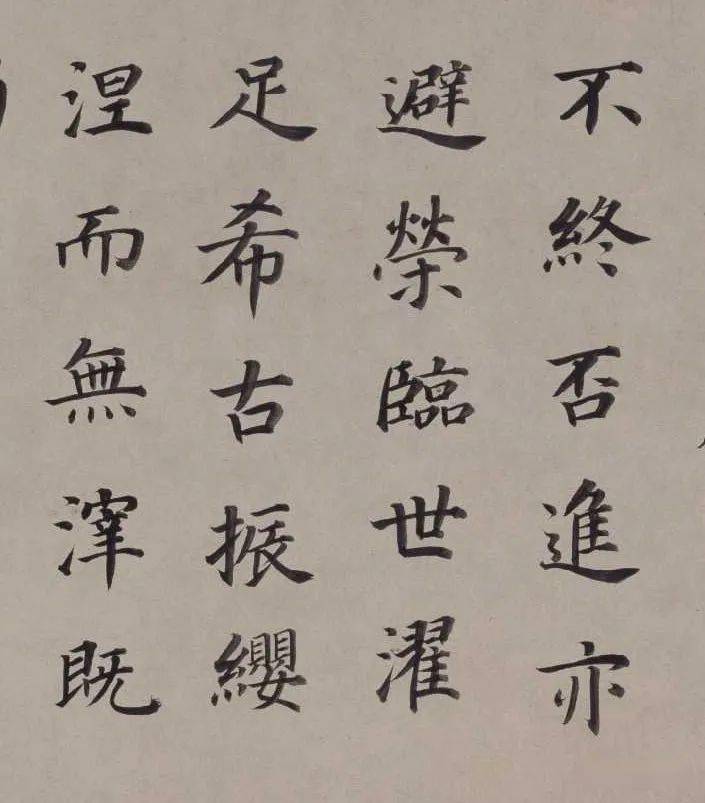 不終否進亦
避榮臨世濯
足希古振纓
涅而無滓既